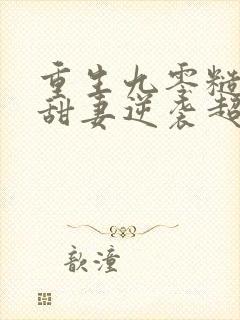 重生九零糙
甜妻逆袭超
歆潼